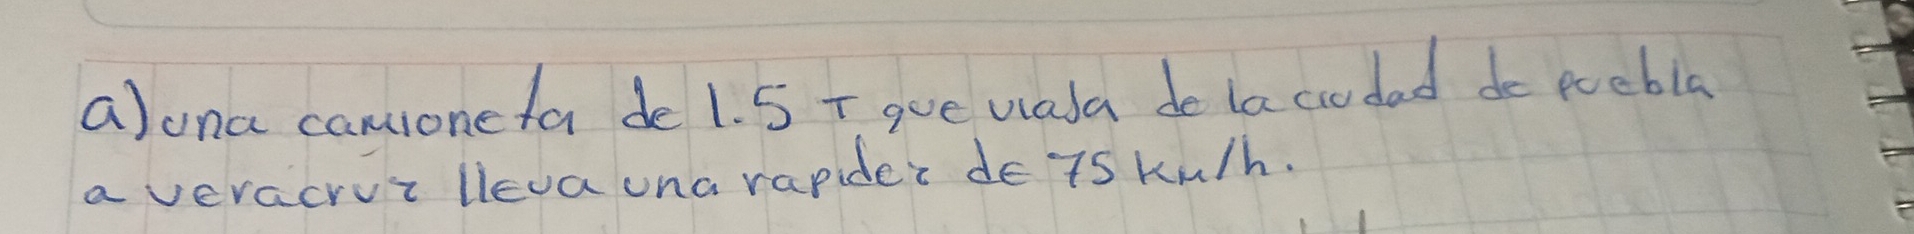 a) una camioneta de 1.5 T que viaja de la ciudad de puebla
a veracruz lleva una rapidez de 75 Km/h.